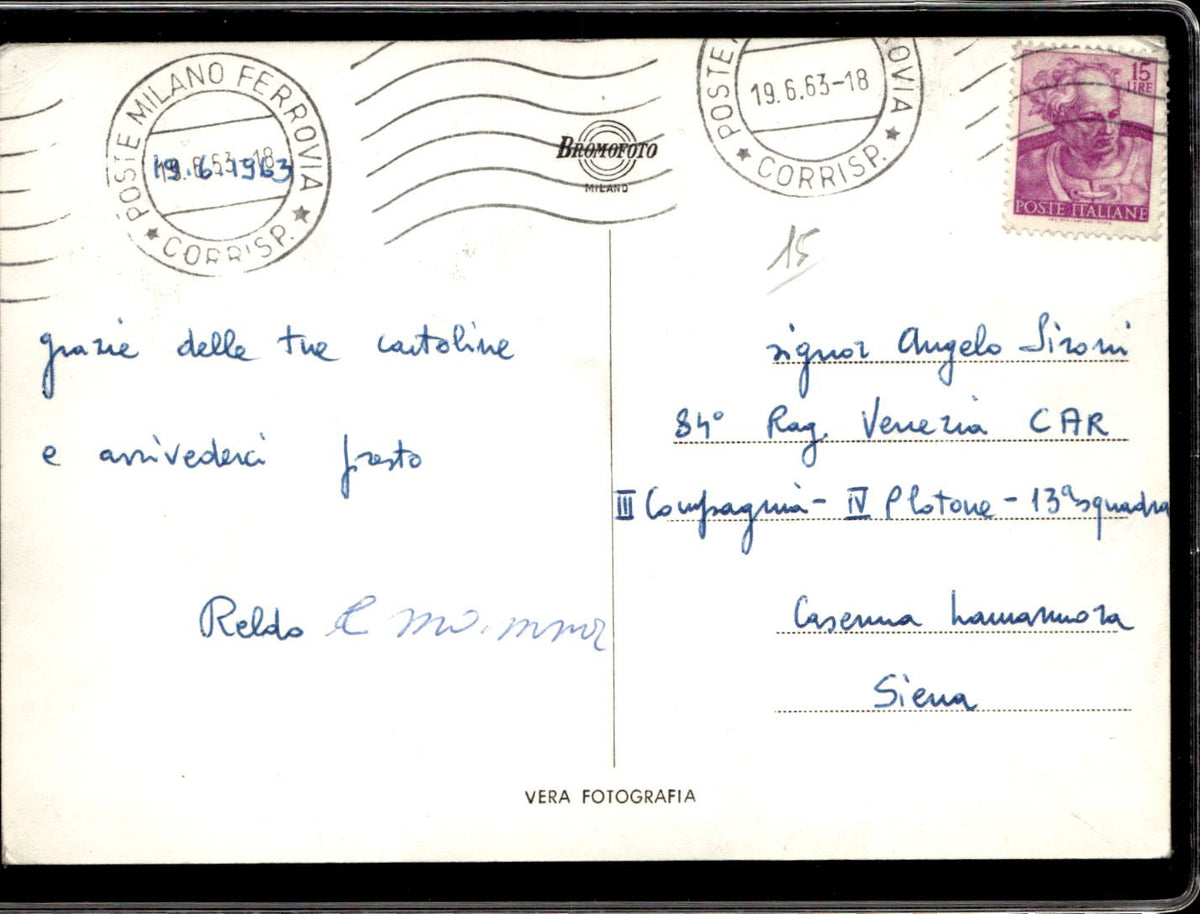 POSTE MILANO FERROVIA
19.6.63-18
19.6.1963
CORRISP.
BROMOFOTO
MILANO
POSTE OVIA
19.6.63-18
CORRISP.
15
LIRE
POSTE ITALIANE
15
grazie delle tue cartoline
e arrivederci presto
Reldo e mamma
signor Angelo Sironi
84° Rag. Venezia CAR
III Compagnia - IV Plotone - 13ª squadra
Caserma Lamarmora
Siena
VERA FOTOGRAFIA